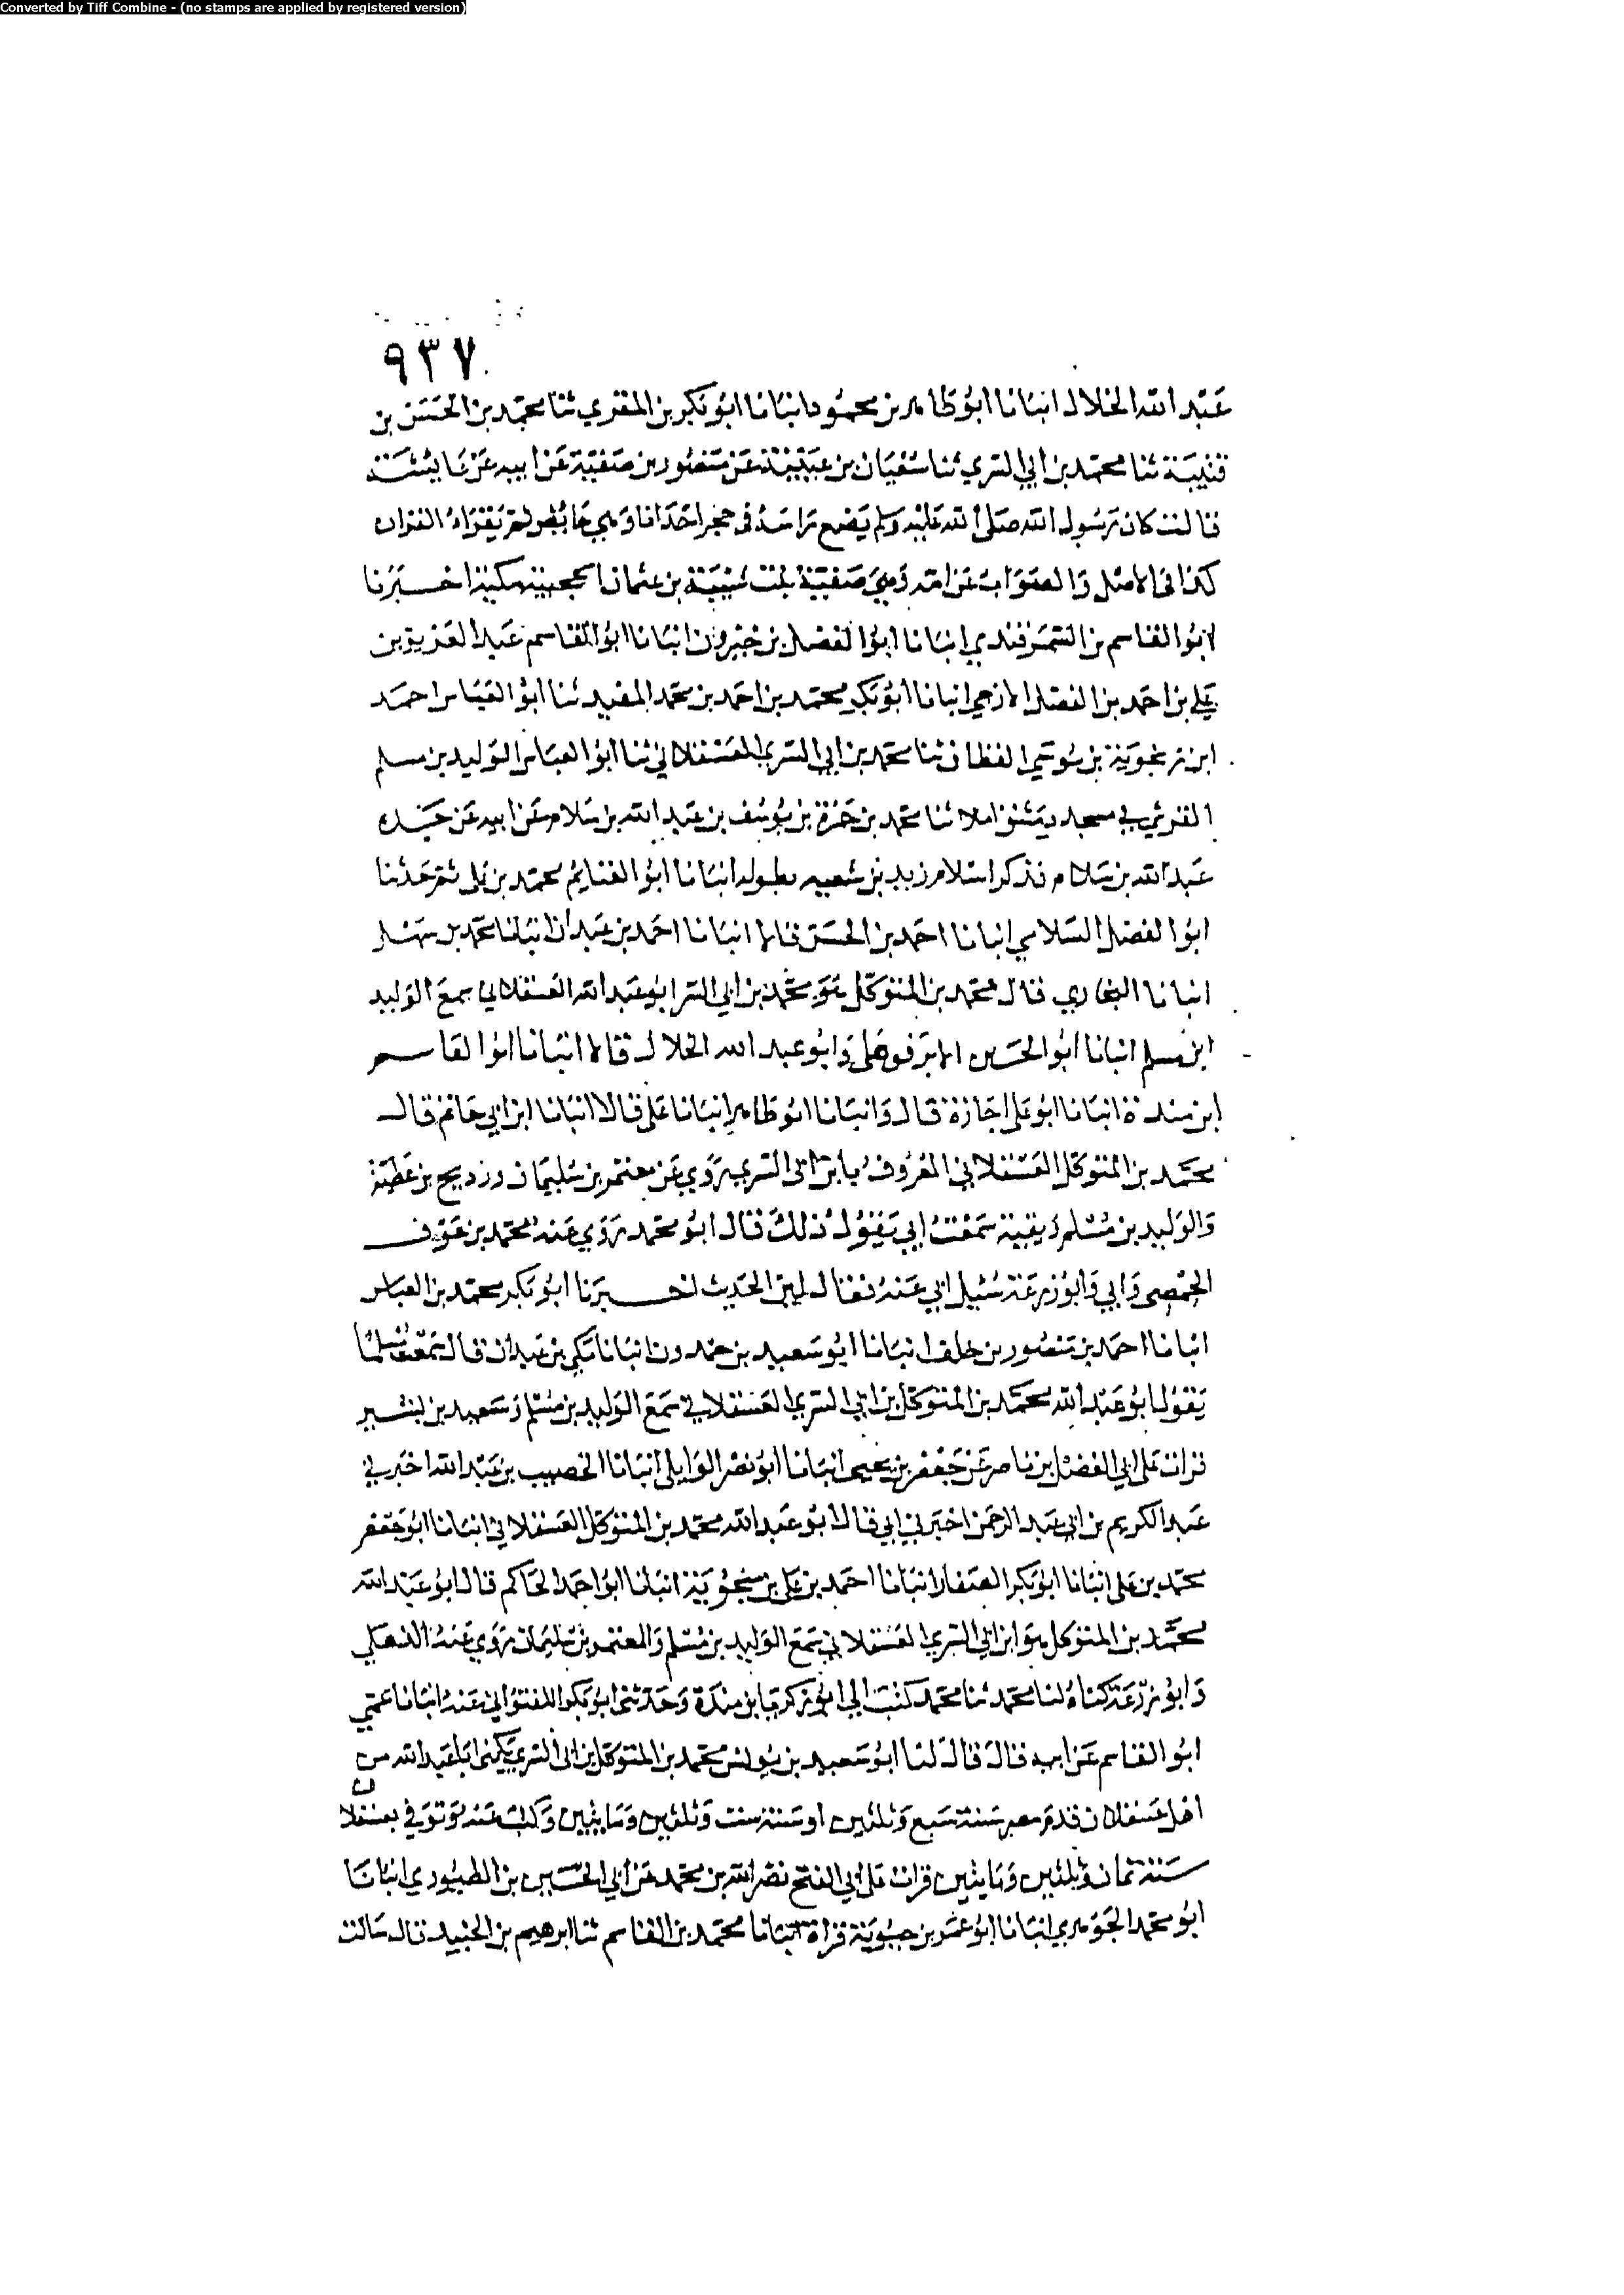 Converted by Tiff Combine - (no stamps are applied by registered version)
٩٣٧
عبد الله الخلال انبانا ابو طاهر بن محمود انبانا ابو بكر بن المقري ثنا محمد بن الحسن بن
قتيبة ثنا محمد بن ابي السري ثنا سفيان بن عيينة عن منصور بن صفية عن ابيه عن عايشة
قالت كان رسول الله صلى الله عليه وسلم يضع راسه في حجر احدانا وهي حايض ثم يقراء القران
كذا في الاصل والصواب عن امه وهي صفية بنت شيبة بن عثمان الحجبية مكية اخبرنا
ابو القاسم بن السمرقندي انبانا ابو الفضل بن خيرون انبانا ابو القاسم عبد العزيز بن
علي بن احمد بن الفضل الازجي انبانا ابو بكر محمد بن احمد بن محمد المفيد ثنا ابو العباس احمد
ابن زنجوية بن موسى القطان ثنا محمد بن ابي السري العسقلاني ثنا ابو العباس الوليد بن مسلم
القرشي في مسجد دمشق املا ثنا محمد بن حمزة بن يوسف بن عبد الله بن سلام عن ابيه عن جده
عبد الله بن سلام فذكر اسلام زيد بن شعيه بطوله انبانا ابو الغنايم محمد بن علي ثم حدثنا
ابو الفضل السلامي انبانا احمد بن الحسن قالا انبانا احمد بن عبدان انبانا محمد بن سهل
انبانا البخاري قال محمد بن المتوكل هو محمد بن ابي السر ابو عبد الله العسقلاني سمع الوليد
ابن مسلم انبانا ابو الحسين الابرقوهي وابو عبد الله الخلال قالا انبانا ابو القاسم
ابن مندة انبانا ابو علي اجازة قال وانبانا ابو طاهر انبانا علي قالا انبانا ابن ابي حاتم قال
محمد بن المتوكل العسقلاني المعروف بابن ابي السري روي عن معتمر بن سليمان وزديح بن عطية
والوليد بن مسلم وبقية سمعت ابي يقول ذلك قال ابو محمد روي عنه محمد بن عوف
الحمصي وابي وابو زرعة سئيل ابي عنه فقال لين الحديث اخبرنا ابو بكر محمد بن العباس
انبانا احمد بن منصور بن خلف انبانا ابو سعيد بن حمدون انبانا مكي بن عبدان قال سمعت مسلما
يقول ابو عبد الله محمد بن المتوكل بن ابي السري العسقلاني سمع الوليد بن مسلم وسعيد بن بشير
قرات على ابي الفضل بن ناصر عن جعفر بن يحيى انبانا ابو نصر الوايلي انبانا الخصيب بن عبد الله اخبرني
عبد الكريم بن ابي عبد الرحمن اخبرني ابي قال ابو عبد الله محمد بن المتوكل العسقلاني انبانا ابو جعفر
محمد بن علي انبانا ابو بكر الصفار انبانا احمد بن علي بن منجوية انبانا ابو احمد الحاكم قال ابو عبد الله
محمد بن المتوكل هو ابن ابي السري العسقلاني سمع الوليد بن مسلم والمعتمر بن سليمان روي عنه الذهلي
وابو زرعة كناه لنا محمد ثنا محمد كتب الي ابو زكريا بن مندة وحدثني ابو بكر اللفتواني عنه انبانا عمي
ابو القاسم عن ابيه قال قال لنا ابو سعيد بن يونس محمد بن المتوكل بن ابي السري يكنى ابا عبد الله من
اهل عسقلان قدم مصر سنة سبع وثلثين او سنة ست وثلثين ومايتين وكتب عنه وتوفي بعسقلان
سنة ثمان وثلثين ومايتين قرات على ابي الفتح نصر الله بن محمد عن ابي الحسين بن الطيوري انبانا
ابو محمد الجوهري انبانا ابو عمر بن حيوية قراة انبانا محمد بن القاسم ثنا ابرهيم بن الجنيد قال سالت